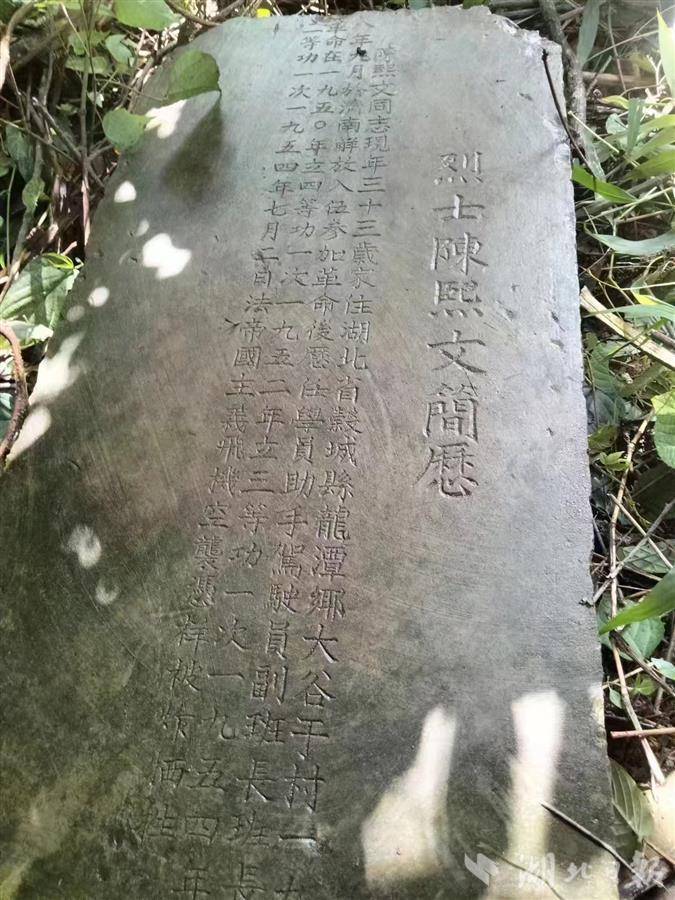 烈士陳熙文簡歷
陳熙文同志現年三十三歲家住湖北省穀城縣龍潭鄉大谷于村一九
八年九月於濟南解放入伍参加革命後歷任學員助手駕駛員副班長班長
革命在一九五〇年立四等功一次一九五二年立三等功一次一九五四年
立二等功一次一九五四年七月二日法帝國主義飛機空襲憑祥被炸牺牲
湖北日報